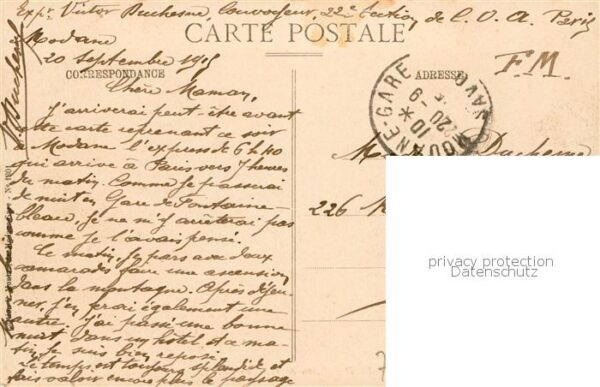 Expr Victor Duchesne, Convoyeur, 22e Section de C. O. A. Paris
CARTE POSTALE
Modane
20 Septembre 1915
F.M.
CORRESPONDANCE
ADRESSE
Chère Maman,
J'arriverai peut-être avant
cette carte reprenant ce soir
à Modane l'express de 6h40
qui arrive à Paris vers 7 heures
du matin. Comme je passerai
de nuit en Gare de Fontaine-
bleau, je ne m'y arrêterai pas
comme je l'avais pensé.
Ce matin, je pars avec deux
camarades faire une ascension
dans la montagne. Après déjeu-
ner, j'en ferai également une
autre. J'ai passé une bonne
nuit dans un hôtel et ce ma-
tin je suis bien reposé.
Le temps est toujours splendide et
fait valoir encore plus le paysage
V Duchesne
MODANE-GARE
10 *
20-9
Duchesne
226
privacy protection
Datenschutz